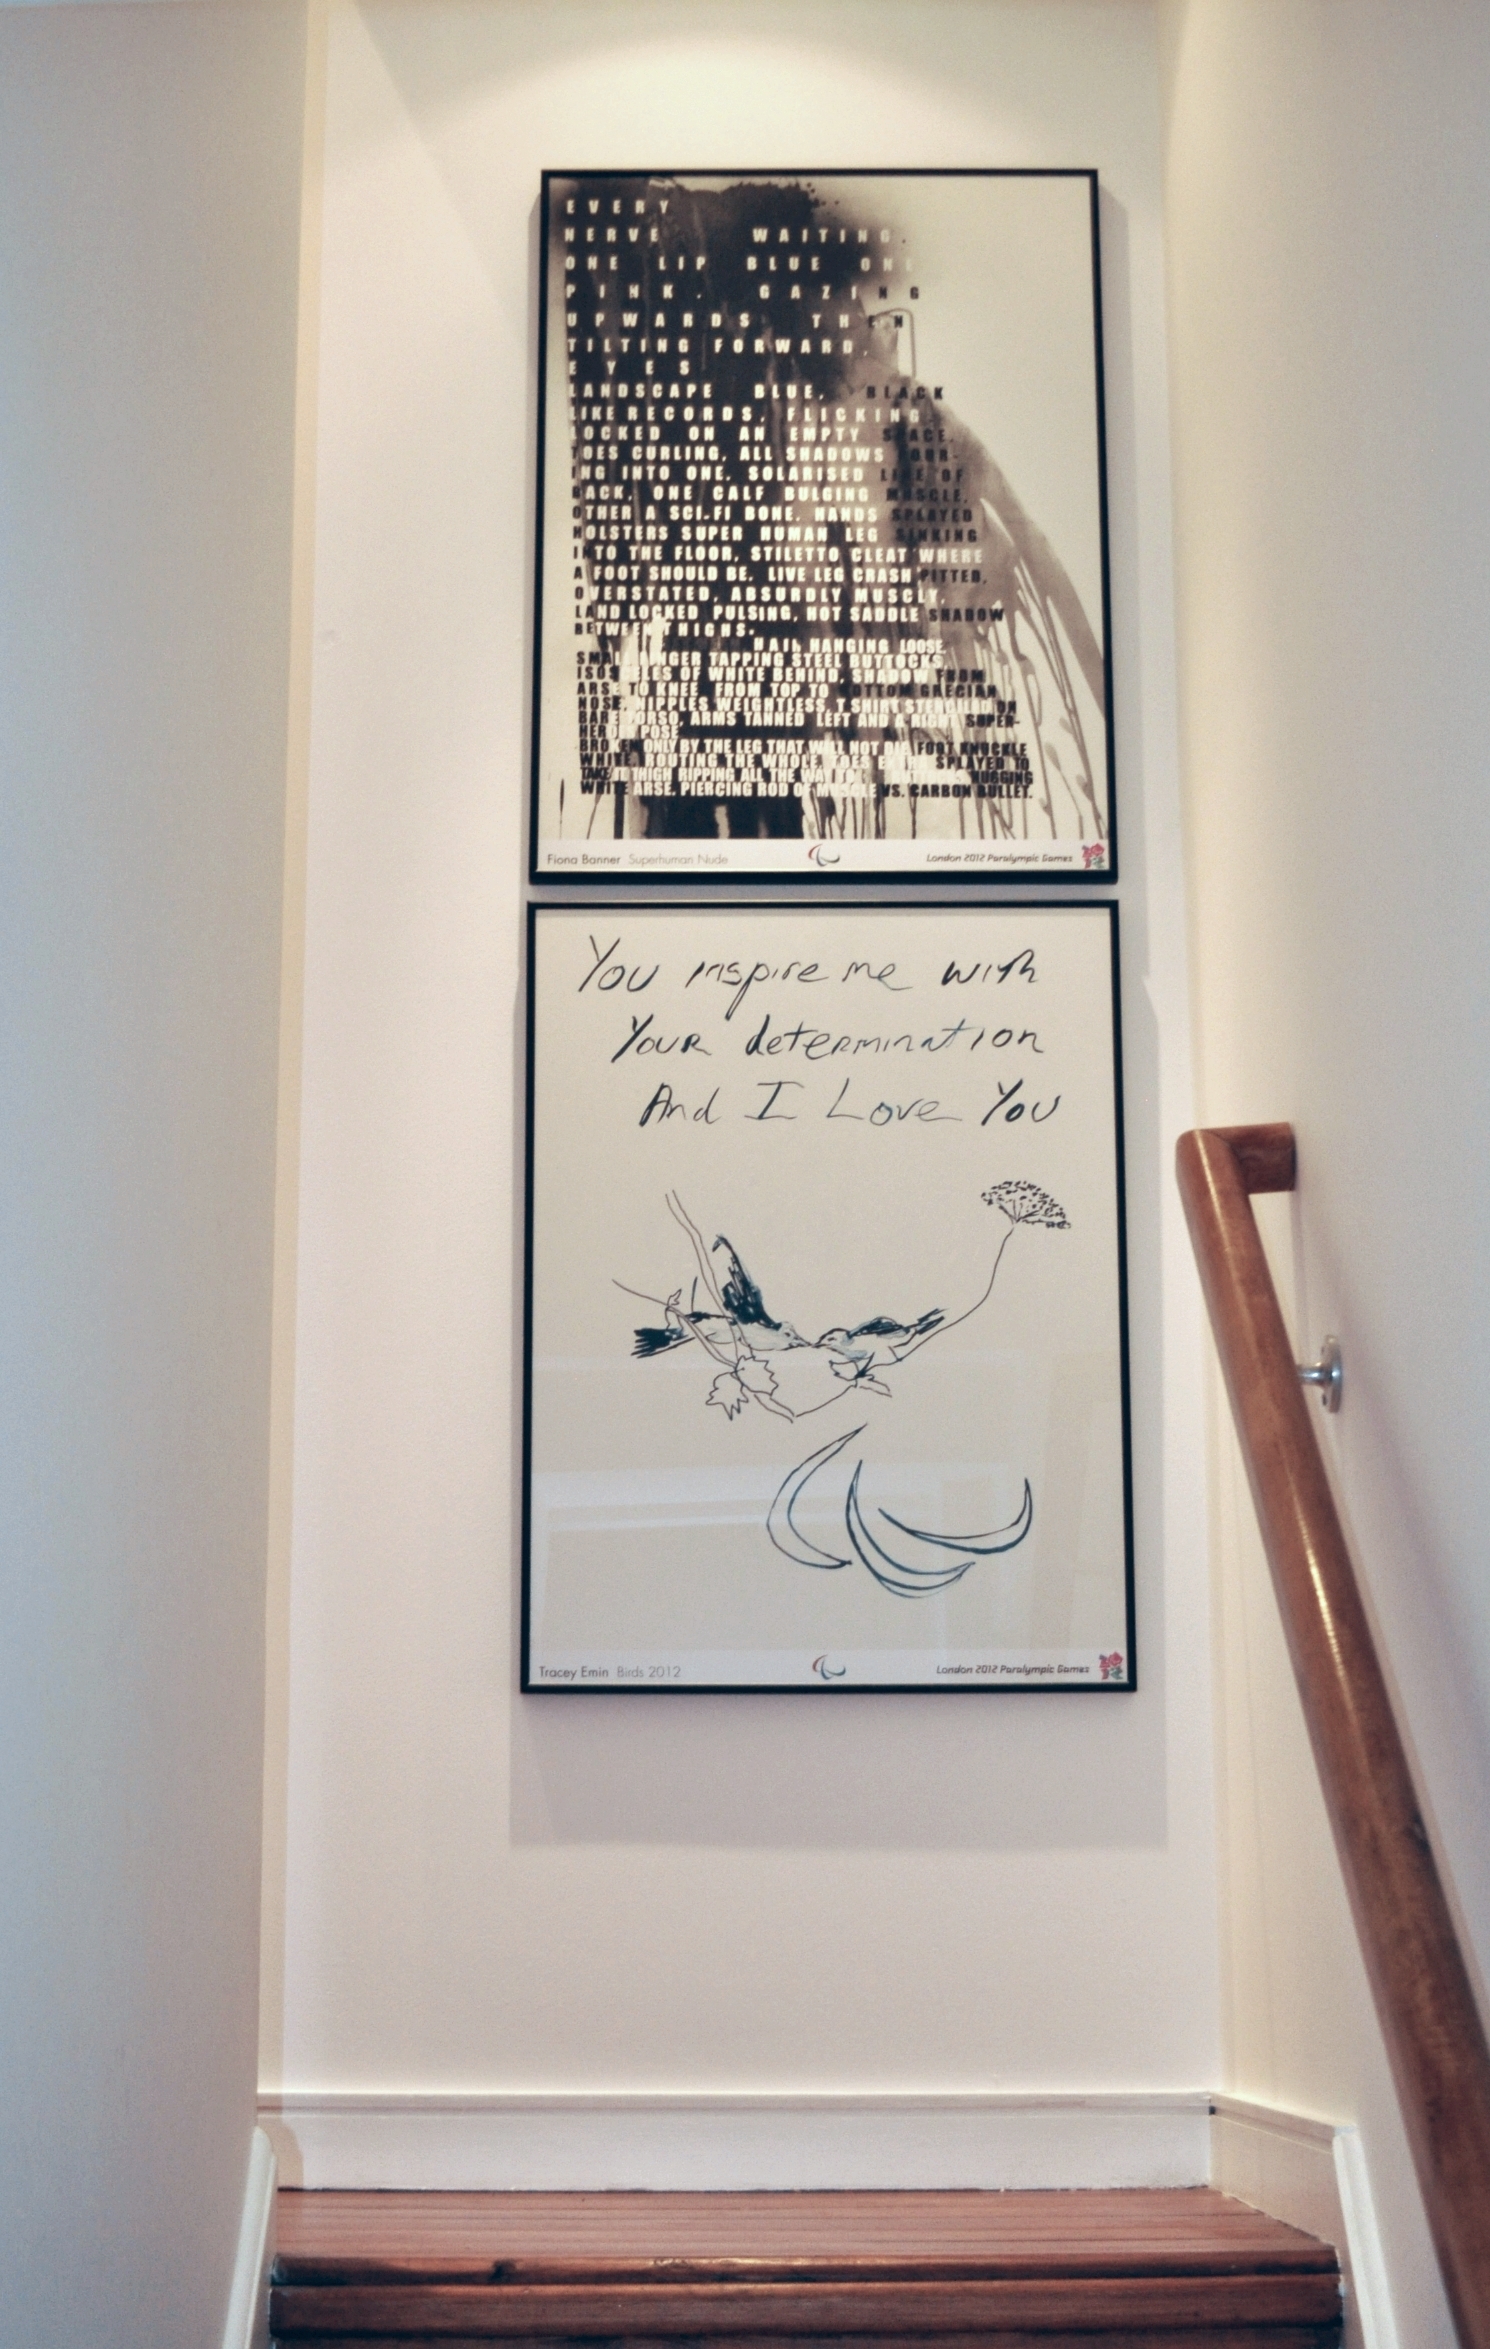 EVERY
NERVE WAITING.
ONE LIP BLUE ONE
PINK. GAZING
UPWARDS THEN
TILTING FORWARD,
EYES
LANDSCAPE BLUE, BLACK
LIKE RECORDS, FLICKING
LOCKED ON AN EMPTY SPACE.
TOES CURLING, ALL SHADOWS POUR-
ING INTO ONE. SOLARISED LINE OF
BACK, ONE CALF BULGING MUSCLE,
OTHER A SCI-FI BONE. HANDS SPLAYED
HOLSTERS SUPER HUMAN LEG SINKING
INTO THE FLOOR, STILETTO CLEAT WHERE
A FOOT SHOULD BE. LIVE LEG CRASH PITTED,
OVERSTATED, ABSURDLY MUSCLY,
LAND LOCKED PULSING, HOT SADDLE SHADOW
BETWEEN THIGHS.
HANGING LOOSE.
SMALL FINGER TAPPING STEEL BUTTOCKS
ISOSCELES OF WHITE BEHIND, SHADOW FROM
ARSE TO KNEE. FROM TOP TO BOTTOM GRECIAN
NOSE, NIPPLES WEIGHTLESS, T SHIRT STENCILLED ON
BARE TORSO, ARMS TANNED LEFT AND A RIGHT SUPER-
HERO POSE
BROKEN ONLY BY THE LEG THAT WILL NOT DIE. FOOT KNUCKLE
WHITE. ROUTING THE WHOLE. TOES SPLAYED TO
TAKE IT. THIGH RIPPING ALL THE WAY HUGGING
WHITE ARSE. PIERCING ROD OF MUSCLE VS. CARBON BULLET.
Fiona Banner Superhuman Nude London 2012 Paralympic Games
You inspire me with
Your determination
And I Love You
Tracey Emin Birds 2012 London 2012 Paralympic Games